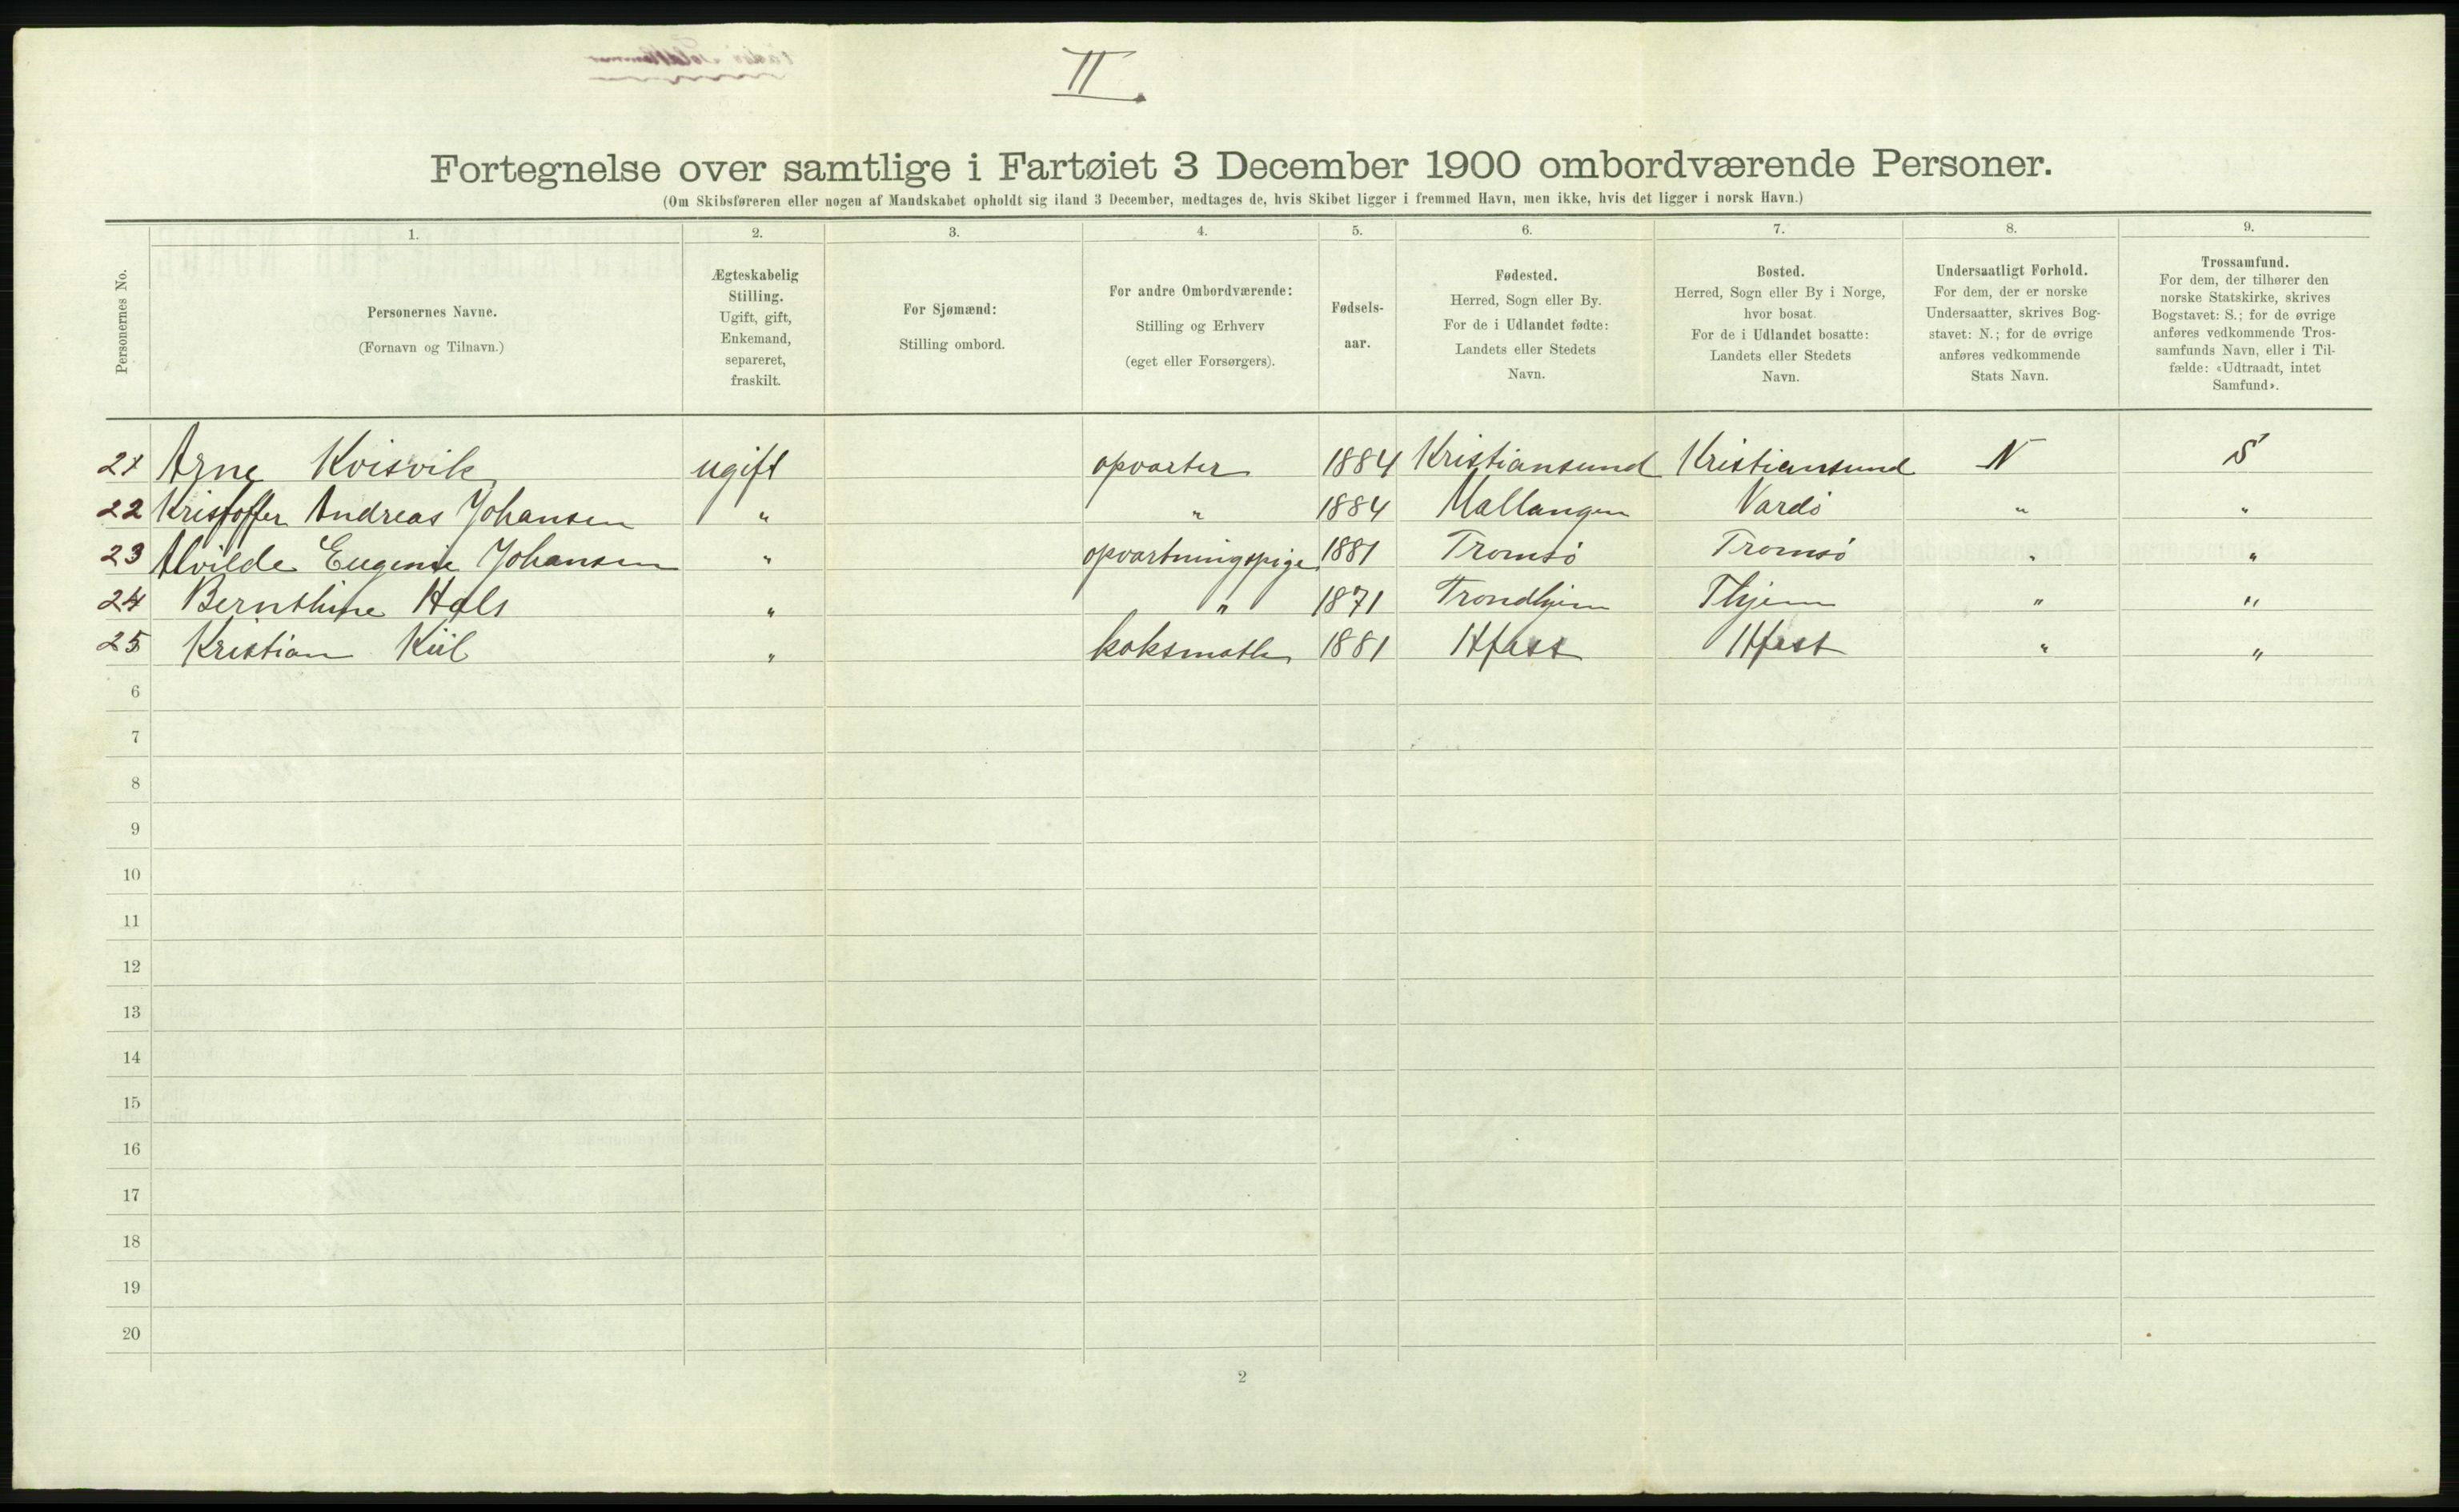 II.
Fortegnelse over samtlige i Fartøiet 3 December 1900 ombordværende Personer.
(Om Skibsføreren eller nogen af Mandskabet opholdt sig iland 3 December, medtages de, hvis Skibet ligger i fremmed Havn, men ikke, hvis det ligger i norsk Havn.)
Personernes No.
1.
Personernes Navne.
(Fornavn og Tilnavn.)
2.
Ægteskabelig
Stilling.
Ugift, gift,
Enkemand,
separeret,
fraskilt.
3.
For Sjømænd:
Stilling ombord.
4.
For andre Ombordværende:
Stilling og Erhverv
(eget eller Forsørgers).
5.
Fødsels-
aar.
6.
Fødested.
Herred, Sogn eller By.
For de i Udlandet fødte:
Landets eller Stedets
Navn.
7.
Bosted.
Herred, Sogn eller By i Norge,
hvor bosat.
For de i Udlandet bosatte:
Landets eller Stedets
Navn.
8.
Undersaatligt Forhold.
For dem, der er norske
Undersaatter, skrives Bog-
stavet: N.; for de øvrige
anføres vedkommende
Stats Navn.
9.
Trossamfund.
For dem, der tilhører den
norske Statskirke, skrives
Bogstavet: S.; for de øvrige
anføres vedkommende Tros-
samfunds Navn, eller i Til-
fælde: «Udtraadt, intet
Samfund».
21 Arne Kvisvik ugift opvarter 1884 Kristiansund Kristiansund N S
22 Kristoffer Andreas Johansen " " 1884 Mallangen Vardö " "
23 Alvilde Eugenie Johansen " opvartningspige 1881 Tromsö Tromsö " "
24 Bernthine Hals " " 1871 Trondhjem Thjem " "
25 Kristian Kiil " koksmath 1881 Hfest Hfest " "
6
7
8
9
10
11
12
13
14
15
16
17
18
19
20
2